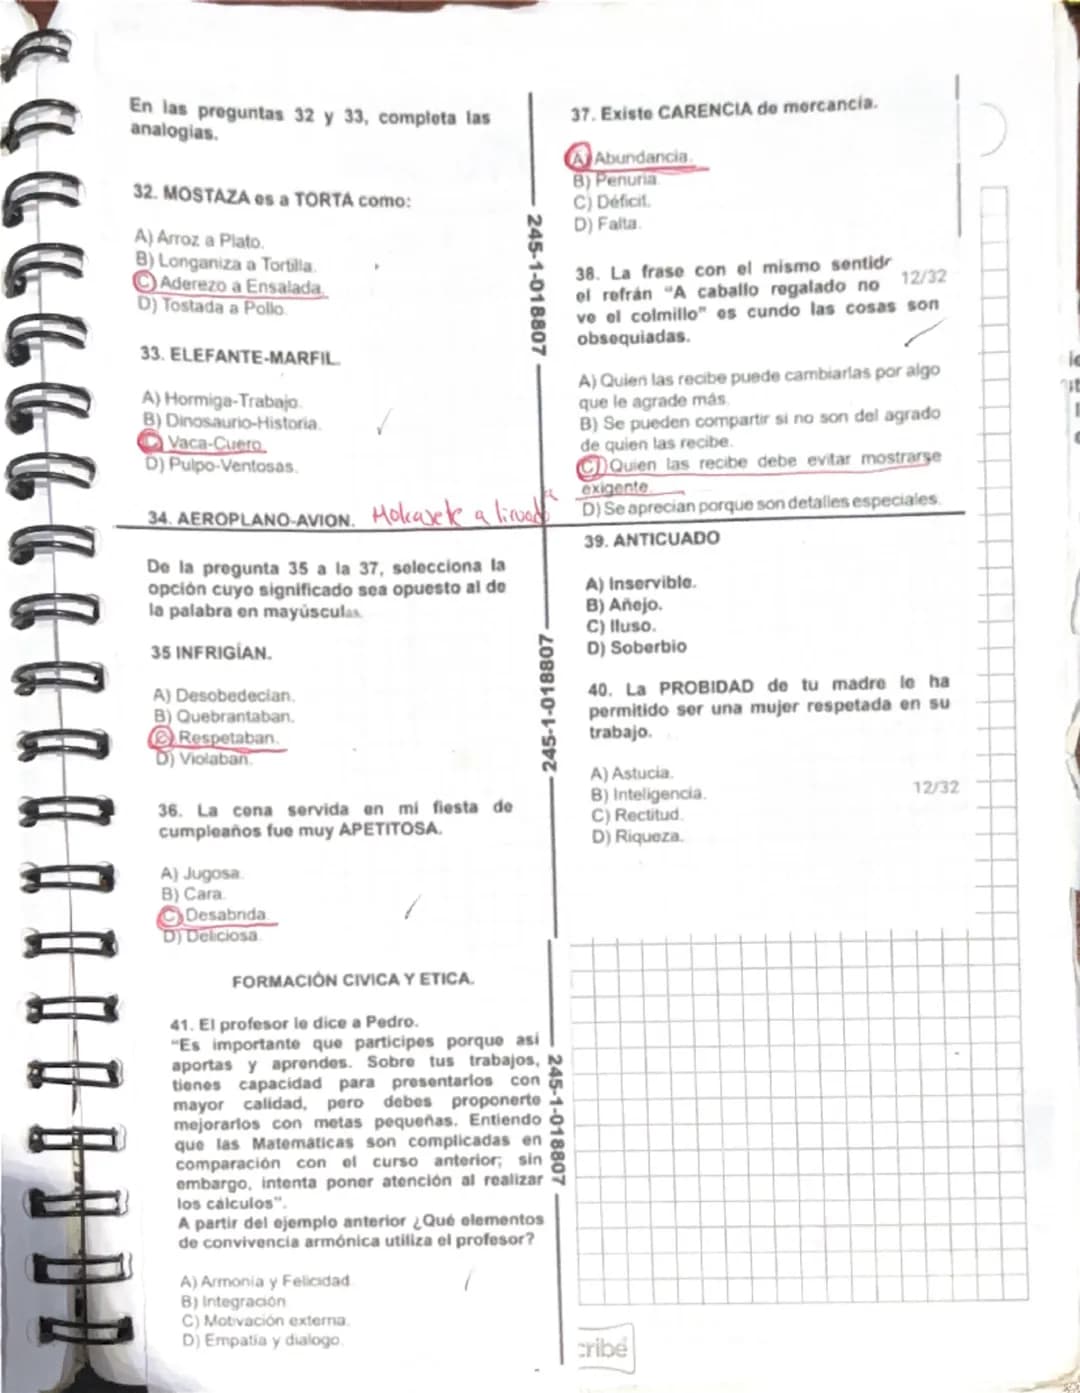 En las preguntas 32 y 33, completa las
analogias.
32. MOSTAZA es a TORTA como:
A) Arroz a Plato.
B) Longaniza a Tortilla.
C) Aderezo a Ensalada.
D) Tostada a Pollo.
33. ELEFANTE-MARFIL.
A) Hormiga-Trabajo.
B) Dinosaurio-Historia.
C) Vaca-Cuero.
D) Pulpo-Ventosas.
34. AEROPLANO-AVION.
De la pregunta 35 a la 37, selecciona la
opción cuyo significado sea opuesto al de
la palabra en mayúsculas
35 INFRIGÍAN.
A) Desobedecian.
B) Quebrantaban.
C) Respetaban.
D) Violaban.
36. La cena servida en mi fiesta de
cumpleaños fue muy APETITOSA.
A) Jugosa.
B) Cara.
C) Desabrida.
D) Deliciosa.
FORMACIÓN CIVICA Y ETICA.
41. El profesor le dice a Pedro.
"Es importante que participes porque asi
aportas y aprendes. Sobre tus trabajos,
tienes capacidad para presentarlos con
mayor calidad, pero debes proponerte
mejorarlos con metas pequeñas. Entiendo
que las Matemáticas son complicadas en
comparación con el curso anterior; sin
embargo, intenta poner atención al realizar
los cálculos".
A partir del ejemplo anterior ¿Qué elementos
de convivencia armónica utiliza el profesor?
A) Armonia y Felicidad
B) Integración
C) Motivación externa.
D) Empatia y dialogo.
245-1-018807
245-1-018807
245-1-018807
37. Existe CARENCIA de mercancía.
A) Abundancia.
B) Penuria.
C) Déficit.
D) Falta.
38. La frase con el mismo sentido
12/32
el refrán "A caballo regalado no
ve el colmillo" es cundo las cosas son
obsequiadas.
A) Quien las recibe puede cambiarlas por algo
que le agrade más.
B) Se pueden compartir si no son del agrado
de quien las recibe.
C) Quien las recibe debe evitar mostrarse
exigente.
D) Se aprecian porque son detalles especiales.
39. ANTICUADO
A) Inservible.
B) Añejo.
C) Iluso.
D) Soberbio
40. La PROBIDAD de tu madre le ha
permitido ser una mujer respetada en su
trabajo.
A) Astucia.
B) Inteligencia.
C) Rectitud.
D) Riqueza.
12/32
cribe